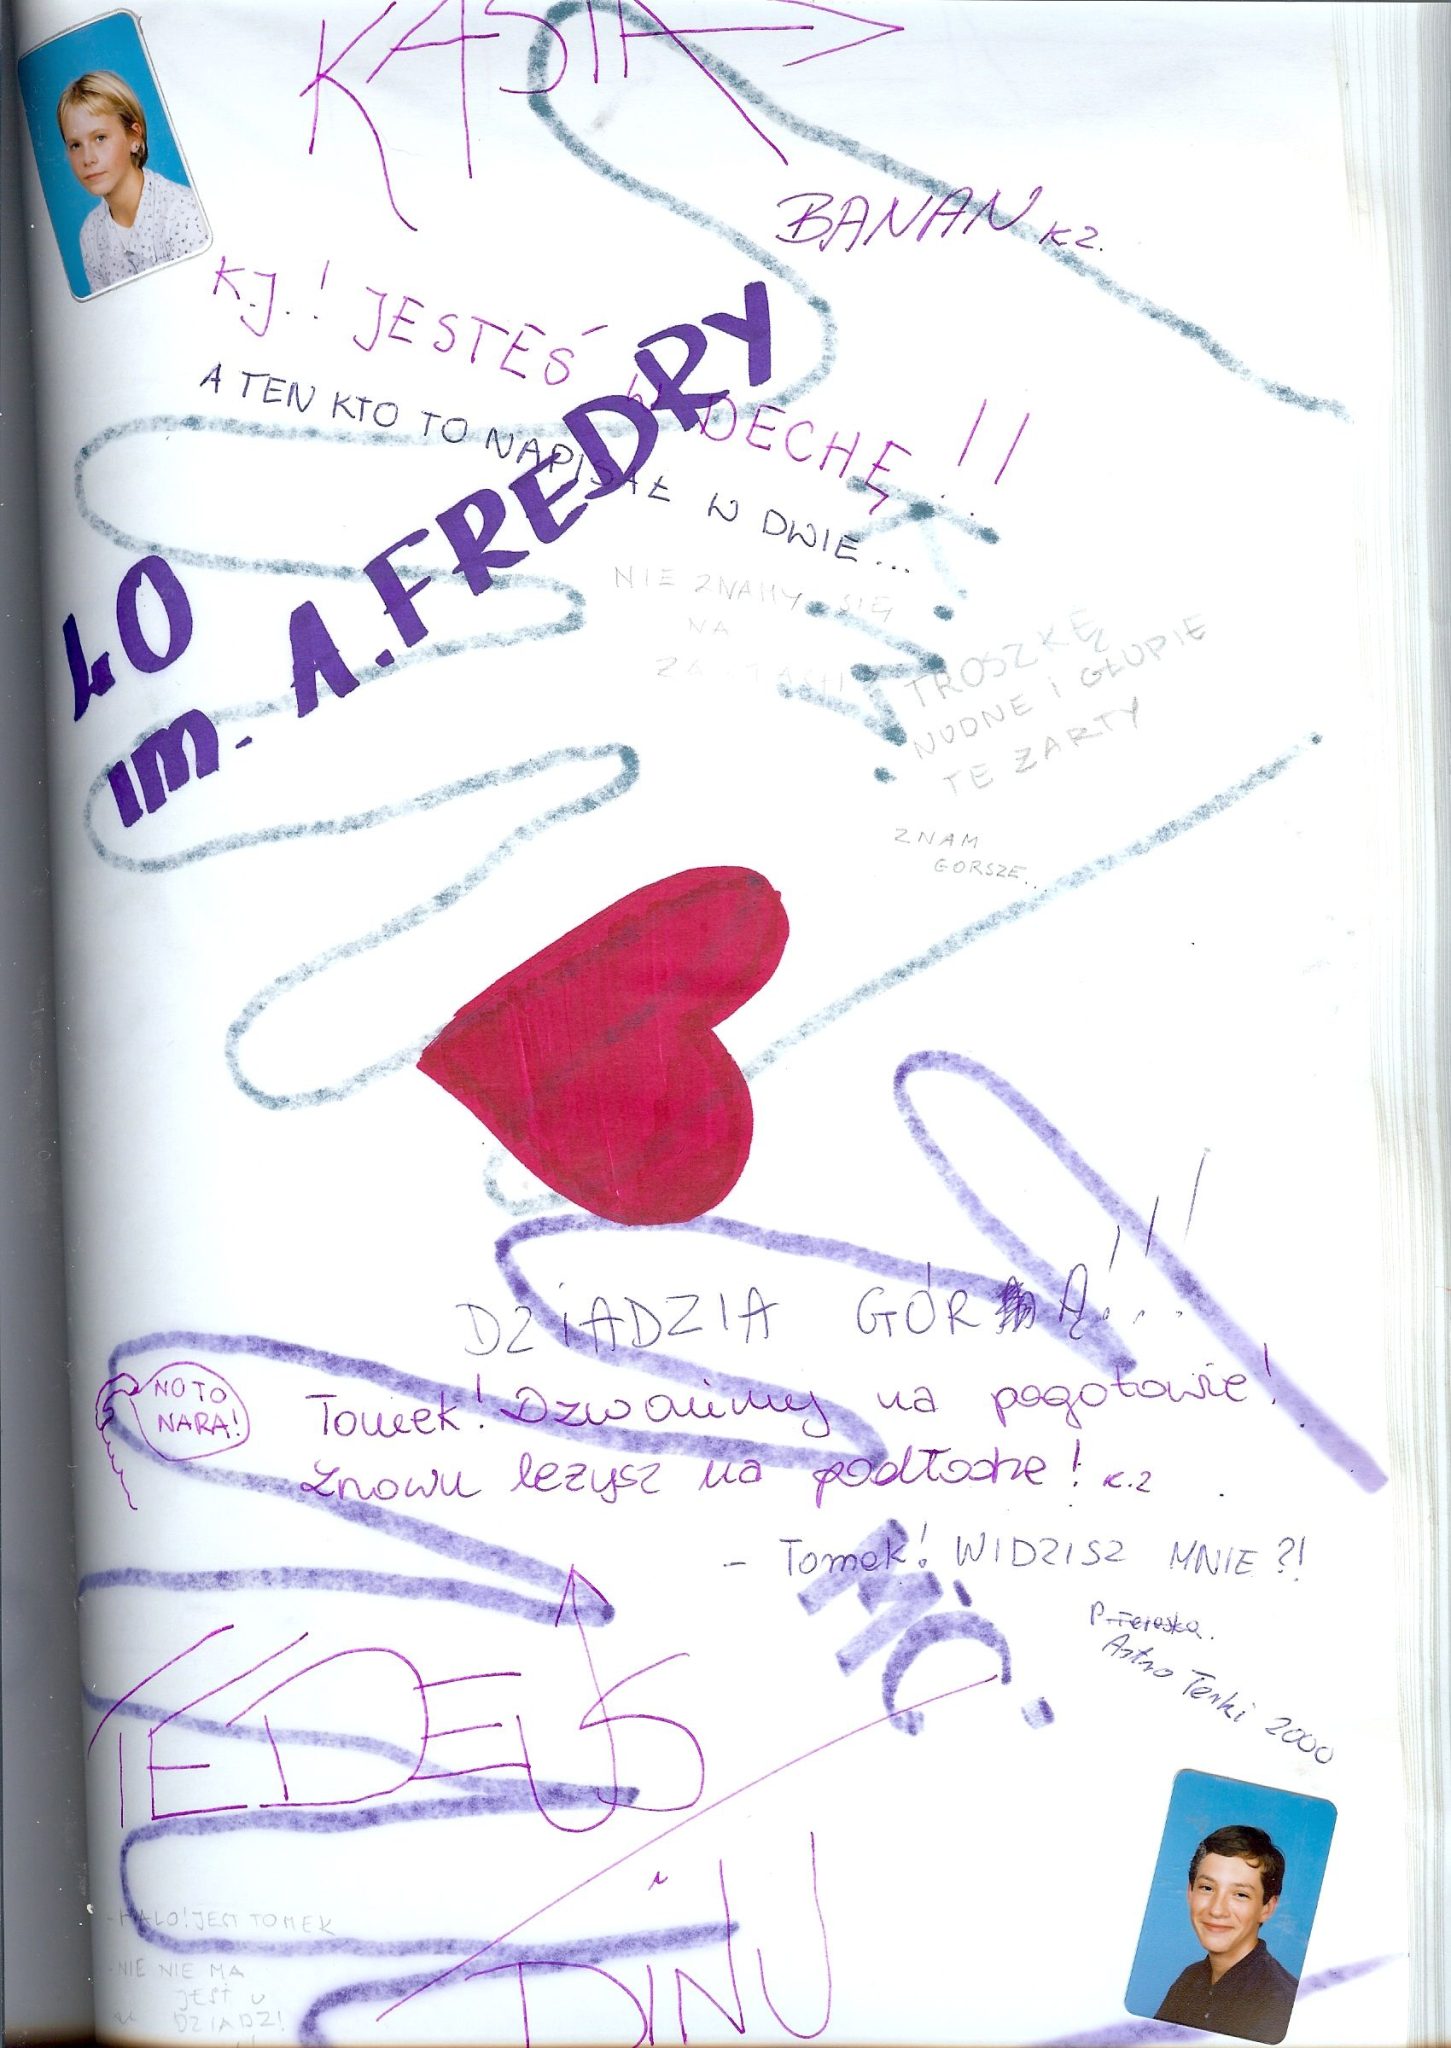 KASIA
BANAN K.Z.
K.J.! JESTEŚ DECHĘ!!
A TEN KTO TO NAPISAŁ W DWIE...
LO
IM. A. FREDRY
NIE ZNAMY SIĘ
NA
TROSZKĘ
NUDNE I GŁUPIE
TE ŻARTY
ZNAM
GORSZE...
DZIADZIA GÓRĄ!!!
NO TO
NARA!
Tomek! Dzwonimy na pogotowie!
Znowu leżysz na podłodze! K.Z
- Tomek! WIDZISZ MNIE?!
M.C.
P. Tereska.
Astro Terki 2000
TEDEUS
i
DINU
- HALO! JEST TOMEK
- NIE NIE MA
JEST U
DZIADZI